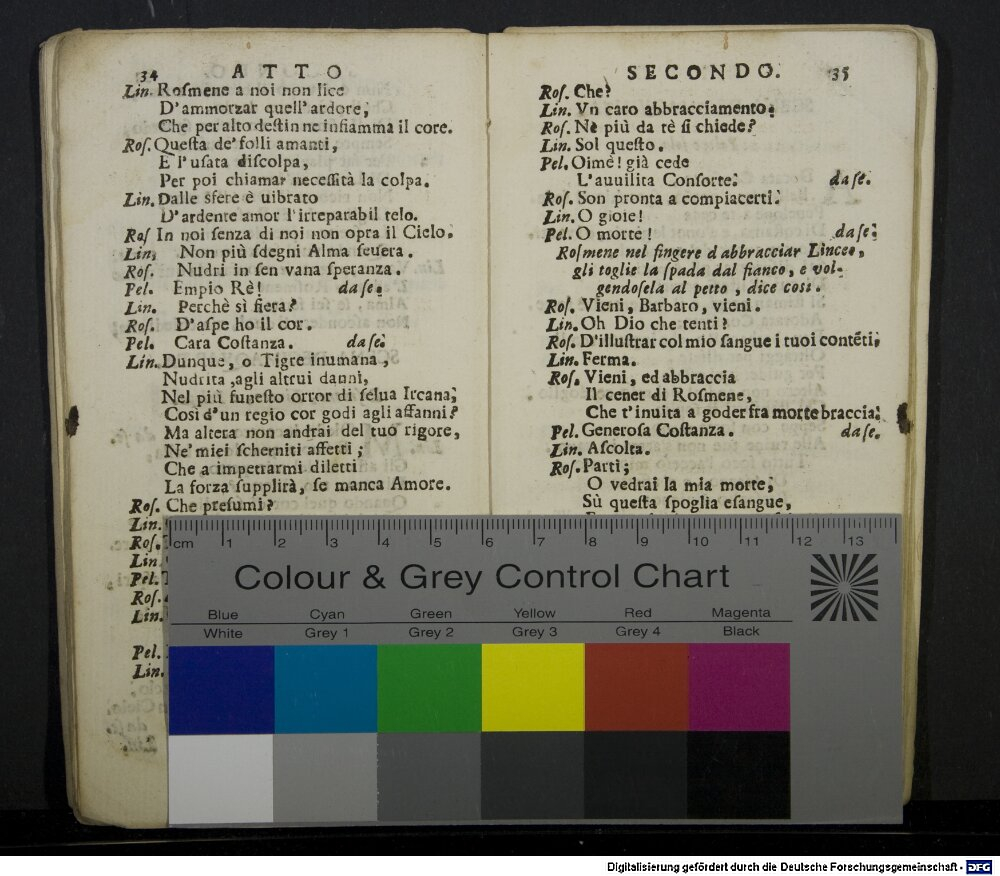 34 ATTO
Lin. Roſmene a noi non lice
D'ammorzar quell'ardore;
Che per alto deſtin ne infiamma il core.
Roſ. Queſta de' folli amanti,
E l'uſata diſcolpa,
Per poi chiamar neceſſità la colpa.
Lin. Dalle sfere è uibrato
D'ardente amor l'irreparabil telo.
Roſ In noi ſenza di noi non opra il Cielo.
Lin. Non più ſdegni Alma ſeuera.
Roſ. Nudri in ſen vana ſperanza.
Pel. Empio Rè! da ſe.
Lin. Perchè sì fiera?
Roſ. D'aſpe ho il cor.
Pel. Cara Coſtanza. da ſe.
Lin. Dunque, o Tigre inumana,
Nudrita, agli altrui danni,
Nel più funeſto orror di ſelua Ircana;
Così d'un regio cor godi agli affanni?
Ma altera non andrai del tuo rigore,
Ne' miei ſcherniti affetti;
Che a impetrarmi diletti
La forza ſupplirà, ſe manca Amore.
Roſ. Che preſumi?
Lin.
Roſ.
Lin.
Pel.
Roſ.
Lin.
Pel.
Lin.
SECONDO. 35
Roſ. Che?
Lin. Vn caro abbracciamento.
Roſ. Nè più da tè ſi chiede?
Lin. Sol queſto.
Pel. Oimè! già cede
L'auuilita Conſorte. da ſe.
Roſ. Son pronta a compiacerti.
Lin. O gioie!
Pel. O morte! da ſe.
Roſmene nel fingere d'abbracciar Linceo,
gli toglie la ſpada dal fianco, e vol-
gendoſela al petto, dice così.
Roſ. Vieni, Barbaro, vieni.
Lin. Oh Dio che tenti?
Roſ. D'illuſtrar col mio ſangue i tuoi contẽti,
Lin. Ferma.
Roſ. Vieni, ed abbraccia
Il cener di Roſmene,
Che t'inuita a goder fra morte braccia.
Pel. Generoſa Coſtanza. da ſe.
Lin. Aſcolta.
Roſ. Parti;
O vedrai la mia morte;
Sù queſta ſpoglia eſangue,
cm 1 2 3 4 5 6 7 8 9 10 11 12 13
Colour & Grey Control Chart
Blue Cyan Green Yellow Red Magenta
White Grey 1 Grey 2 Grey 3 Grey 4 Black
Digitalisierung gefördert durch die Deutsche Forschungsgemeinschaft - DFG